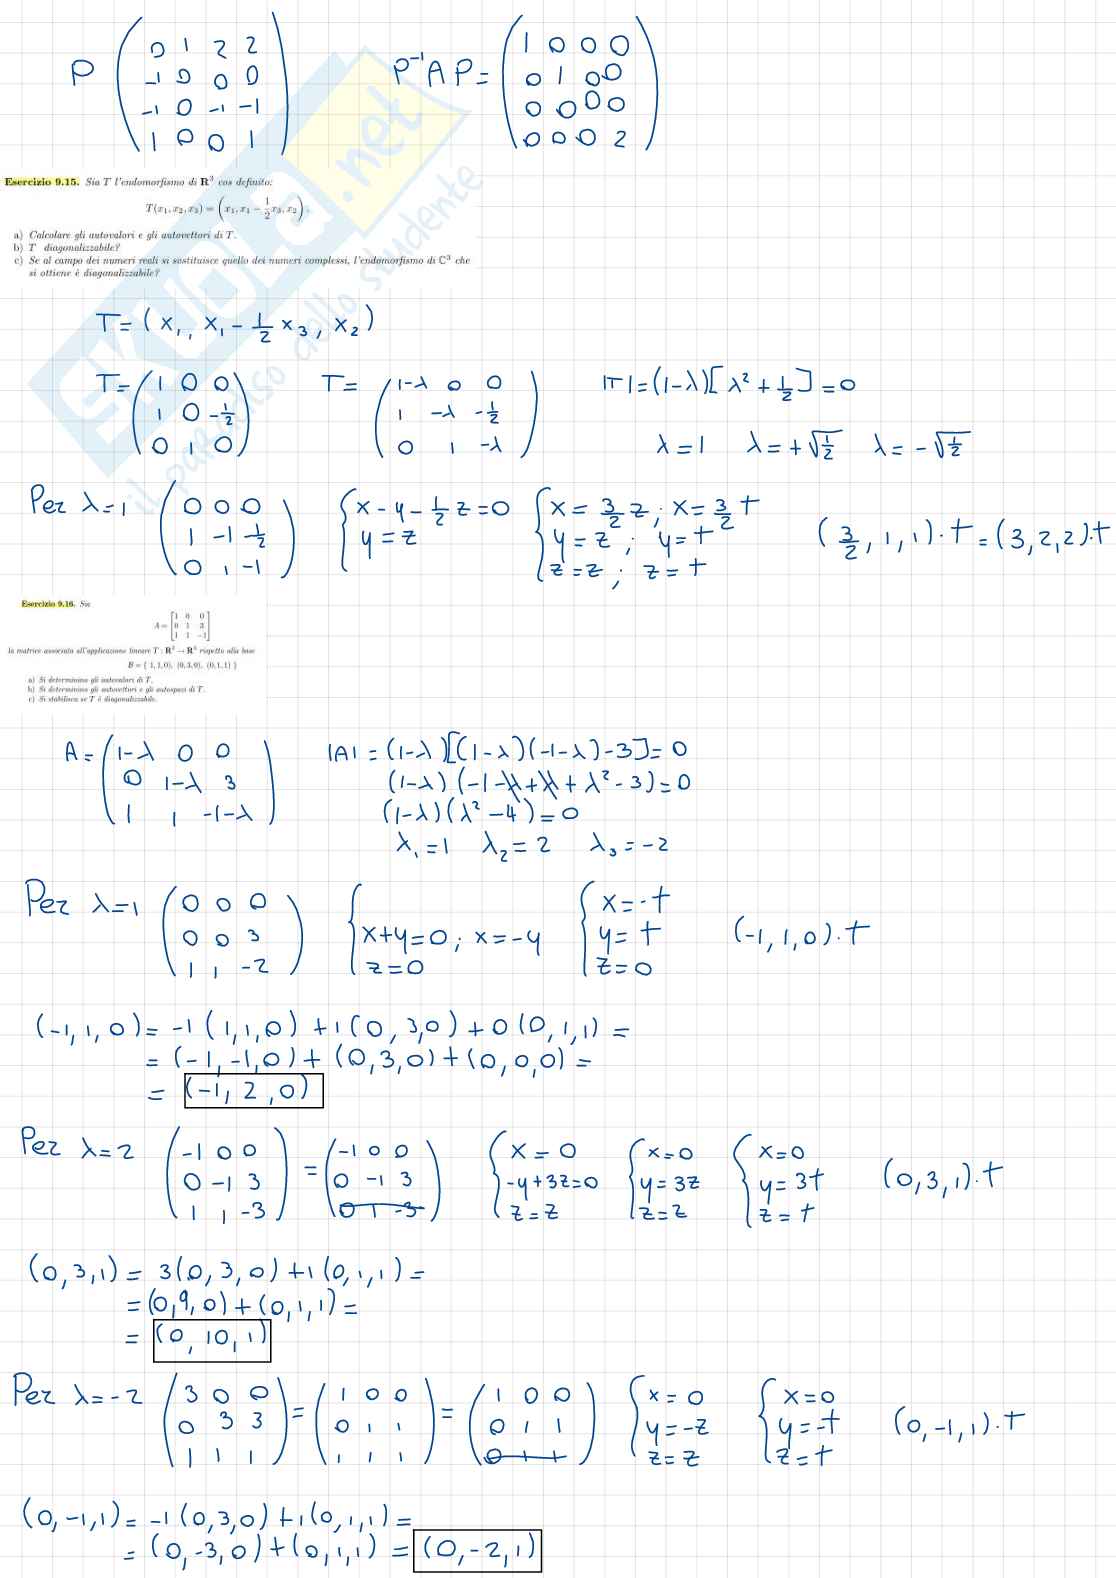 P ( 0 1 2 2
-1 0 0 0
-1 0 -1 -1
1 0 0 1 )
P⁻¹AP = ( 1 0 0 0
0 1 0 0
0 0 0 0
0 0 0 2 )
Esercizio 9.15. Sia T l'endomorfismo di R³ cos definito:
T(x₁, x₂, x₃) = (x₁, x₁ − 1/2 x₃, x₂).
a) Calcolare gli autovalori e gli autovettori di T.
b) T diagonalizzabile?
c) Se al campo dei numeri reali si sostituisce quello dei numeri complessi, l'endomorfismo di C³ che
si ottiene è diagonalizzabile?
T = (x₁, x₁ - 1/2 x₃, x₂)
T = ( 1 0 0
1 0 -1/2
0 1 0 )
T = ( 1-λ 0 0
1 -λ -1/2
0 1 -λ )
|T| = (1-λ)[λ² + 1/2] = 0
λ = 1 λ = +√1/2 λ = -√1/2
Per λ=1 ( 0 0 0
1 -1 1/2
0 1 -1 )
{ x - y - 1/2 z = 0
y = z
{ x = 3/2 z ; x = 3/2 t
y = z ; y = t
z = z ; z = t
(3/2, 1, 1)·t = (3,2,2)·t
Esercizio 9.16. Sia
A = [ 1 0 0
0 1 3
1 1 −1 ]
la matrice associata all'applicazione lineare T : R³ → R³ rispetto alla base
B = { 1, 1, 0), (0, 3, 0), (0, 1, 1) }
a) Si determinino gli autovalori di T.
b) Si determinino gli autovettori e gli autospazi di T.
c) Si stabilisca se T è diagonalizzabile.
A = ( 1-λ 0 0
0 1-λ 3
1 1 -1-λ )
|A| = (1-λ)[(1-λ)(-1-λ)-3] = 0
(1-λ)(-1-λ+λ+λ²-3) = 0
(1-λ)(λ²-4) = 0
λ₁ = 1 λ₂ = 2 λ₃ = -2
Per λ=1 ( 0 0 0
0 0 3
1 1 -2 )
{ x+y=0 ; x=-y
z=0
{ x=-t
y=t
z=0
(-1, 1, 0)·t
(-1, 1, 0) = -1(1,1,0) + 1(0,3,0) + 0(0,1,1) =
= (-1,-1,0) + (0,3,0) + (0,0,0) =
= (-1, 2, 0)
Per λ=2 ( -1 0 0
0 -1 3
1 1 -3 )
= ( -1 0 0
0 -1 3
0 1 -3 )
{ x = 0
-y+3z=0
z=z
{ x=0
y=3z
z=z
{ x=0
y=3t
z=t
(0,3,1)·t
(0,3,1) = 3(0,3,0) + 1(0,1,1) =
= (0,9,0) + (0,1,1) =
= (0, 10, 1)
Per λ=-2 ( 3 0 0
0 3 3
1 1 1 )
= ( 1 0 0
0 1 1
1 1 1 )
= ( 1 0 0
0 1 1
0 1 1 )
{ x=0
y=-z
z=z
{ x=0
y=-t
z=t
(0,-1,1)·t
(0,-1,1) = -1(0,3,0) + 1(0,1,1) =
= (0,-3,0) + (0,1,1) = (0,-2,1)
SKUOLA.net
il paradiso dello studente